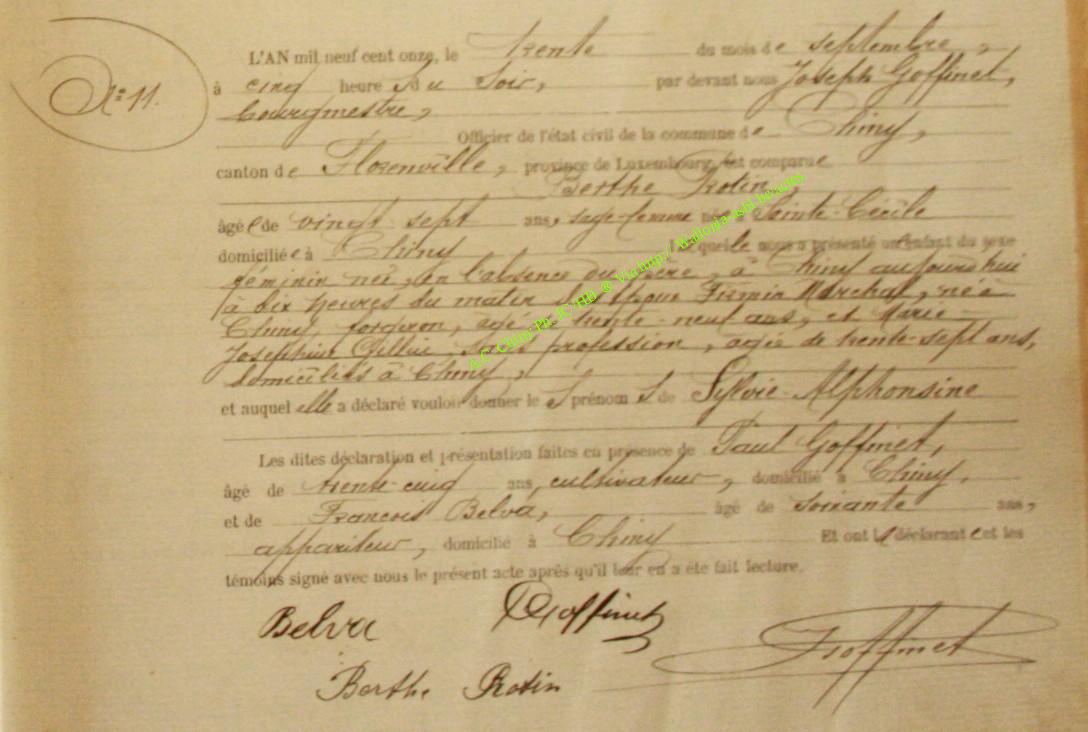 L'AN mil neuf cent onze, le trente du mois de septembre,
N° 11.
à cinq heures du soir, par devant nous Joseph Goffinet,
bourgmestre,
Officier de l'état civil de la commune de Chiny,
canton de Florenville, province de Luxembourg, est comparue
Berthe Rotin,
âgée de vingt sept ans, sage-femme née à Sainte-Cécile
domiciliée à Chiny laquelle nous a présenté un enfant du sexe
féminin né, en l'absence du père, à Chiny aujourd'hui
à dix heures du matin de Firmin Marchal, né à
Chiny, forgeron, âgé de trente-neuf ans, et Marie-
Joséphine Gillin, sans profession, âgée de trente-sept ans,
domiciliés à Chiny,
et auquel elle a déclaré vouloir donner les prénoms de Sylvie-Alphonsine
Les dites déclaration et présentation faites en présence de Paul Goffinet,
âgé de trente cinq ans, cultivateur, domicilié à Chiny,
et de François Belva, âgé de soixante ans,
appariteur, domicilié à Chiny Et ont la déclarante et les
témoins signé avec nous le présent acte après qu'il leur en a été fait lecture.
Belva Goffinet
J Goffinet
Berthe Rotin